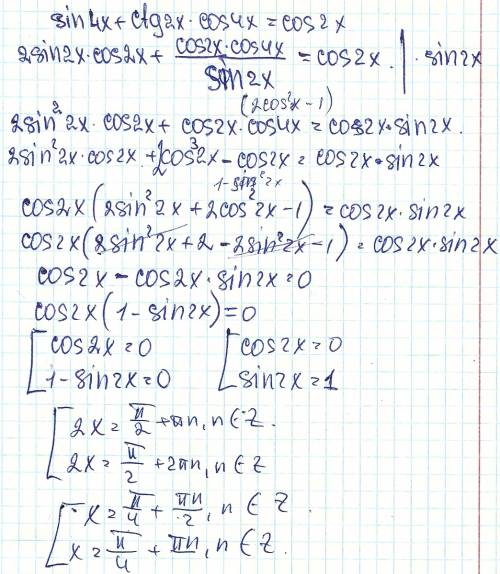 sin4x + ctg2x · cos4x = cos2x
2sin2x·cos2x + cos2x·cos4x / sin2x = cos2x. | · sin2x
(2cos²x - 1)
2sin²2x · cos2x + cos2x·cos4x = cos2x·sin2x.
2sin²2x·cos2x + 2cos³2x - cos2x = cos2x·sin2x
1-sin²2x
cos2x (2sin²2x + 2cos²2x - 1) = cos2x·sin2x
cos2x (2sin²2x + 2 - 2sin²2x - 1) = cos2x·sin2x
cos2x - cos2x·sin2x = 0
cos2x (1 - sin2x) = 0
[ cos2x = 0 [ cos2x = 0
1 - sin2x = 0 sin2x = 1
[ 2x = π/2 + πn, n ∈ Z.
2x = π/2 + 2πn, n ∈ Z
[ x = π/4 + πn/2, n ∈ Z.
x = π/4 + πn, n ∈ Z.